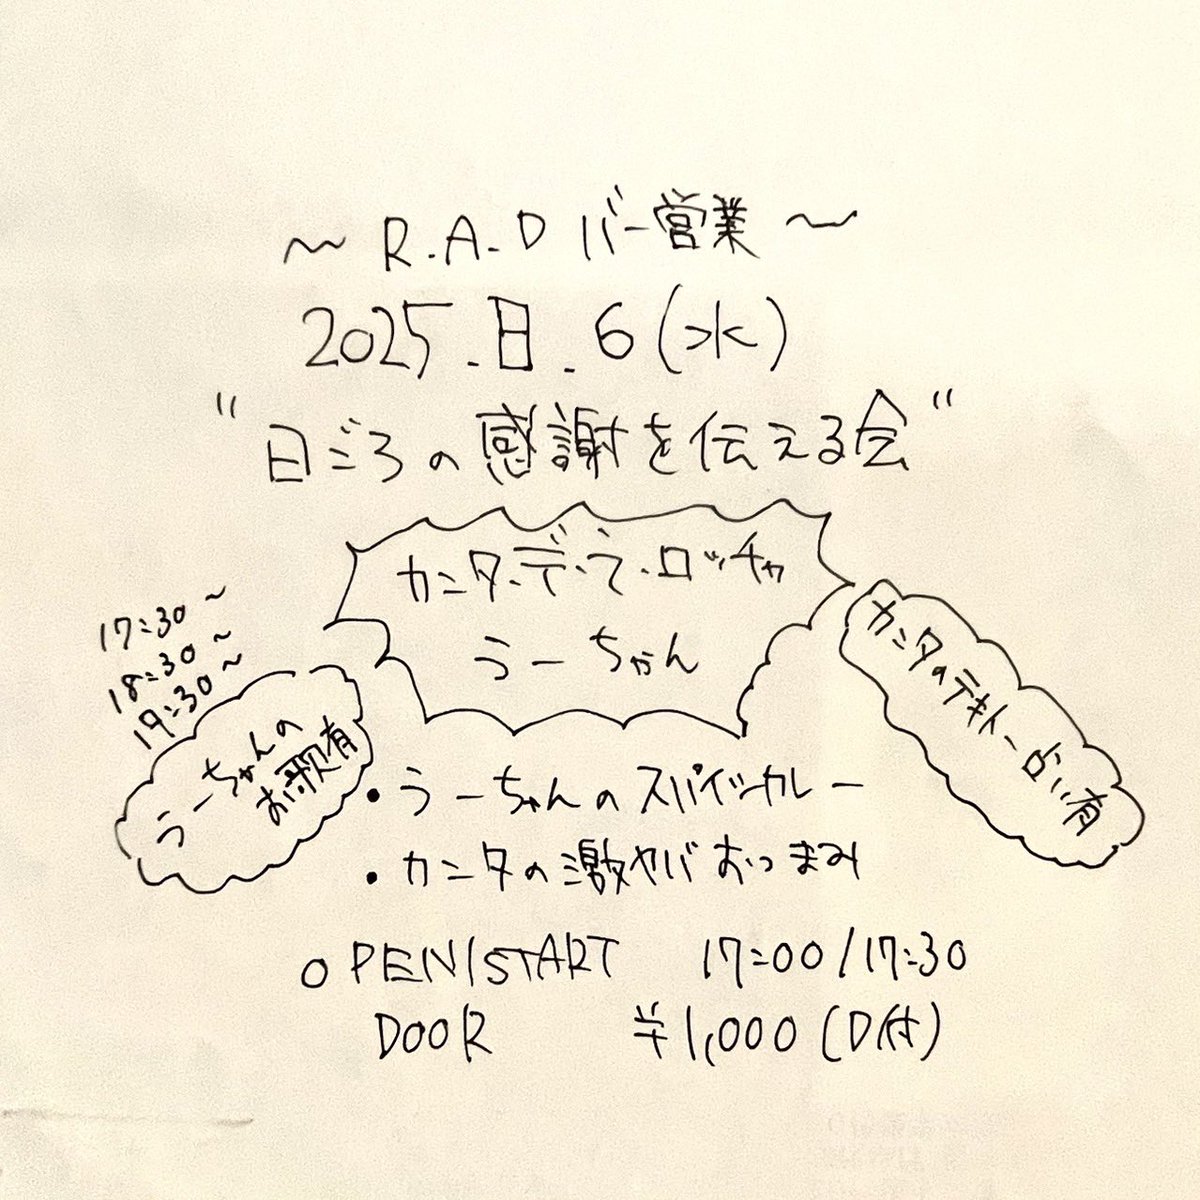 ～R.A.D バー営業～
2025.8.6(水)
"日ごろの感謝を伝える会"
カニタ・デ・ラ・ロッチャ
うーちゃん
17:30～
18:30～
19:30～
うーちゃんの
お歌有
カニタのテキトー占い有
・うーちゃんのスパイシーカレー
・カニタの激ヤバおつまみ
OPEN/START 17:00/17:30
DOOR ¥1,000(D付)